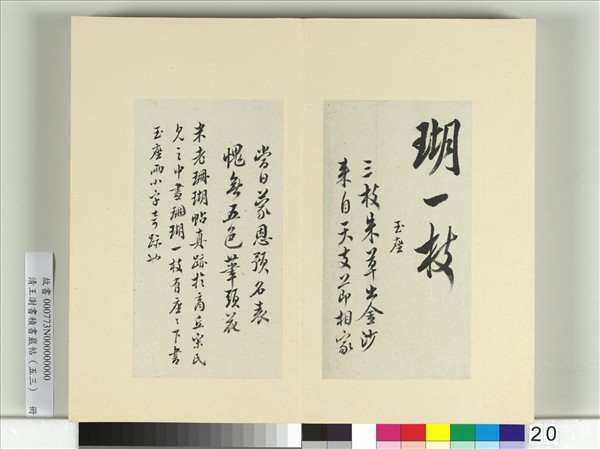 瑚一枝
玉座
三枝朱草出金沙
来自天支節相家
当日蒙恩預名表
愧無五色筆頭花
米老珊瑚帖真跡於商丘宋氏
見之中畫珊瑚一枝有座之下書
玉座兩小字奇跡也
故書 000773N000000000
清王澍書積書巖帖（五三） 冊
20